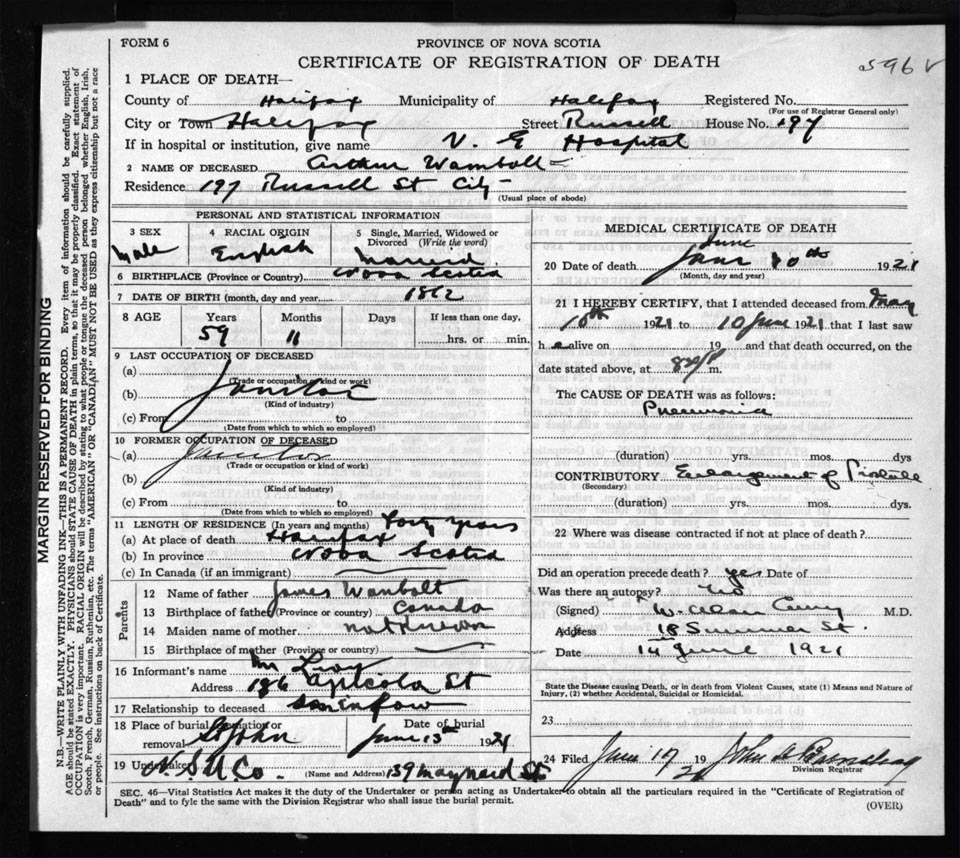 FORM 6
PROVINCE OF NOVA SCOTIA
CERTIFICATE OF REGISTRATION OF DEATH
596 V
1 PLACE OF DEATH—
County of Halifax Municipality of Halifax Registered No.
(For use of Registrar General only)
City or Town Halifax Street Russell House No. 197
If in hospital or institution, give name V. G Hospital
2 NAME OF DECEASED Arthur Wambolt
Residence 197 Russell St City
(Usual place of abode)
PERSONAL AND STATISTICAL INFORMATION
3 SEX 4 RACIAL ORIGIN 5 Single, Married, Widowed or Divorced (Write the word)
Male English Married
6 BIRTHPLACE (Province or Country) Nova Scotia
7 DATE OF BIRTH (month, day and year) 1862
8 AGE Years Months Days If less than one day,
59 11 hrs. or min.
9 LAST OCCUPATION OF DECEASED
(a)
(Trade or occupation or kind or work)
(b) Janitor
(Kind of industry)
(c) From to
(Date from which to which so employed)
10 FORMER OCCUPATION OF DECEASED
(a) Janitor
(Trade or occupation or kind of work)
(b)
(Kind of industry)
(c) From to
(Date from which to which so employed)
11 LENGTH OF RESIDENCE (In years and months) Forty years
(a) At place of death Halifax
(b) In province Nova Scotia
(c) In Canada (if an immigrant)
Parents
12 Name of father James Wambolt
13 Birthplace of father (Province or country) Canada
14 Maiden name of mother not known
15 Birthplace of mother (Province or country)
16 Informant's name Mr Levy
Address 186 St
17 Relationship to deceased son in law
18 Place of burial, cremation or removal St John Date of burial June 13th 1921
19 Undertaker N. S. U Co. (Name and Address) 139 Maynard St
MEDICAL CERTIFICATE OF DEATH
June
20 Date of death June 10th 1921
(Month, day and year)
21 I HEREBY CERTIFY, that I attended deceased from May
10th 1921 to 10 June 1921 that I last saw
h alive on 19 and that death occurred, on the
date stated above, at m.
The CAUSE OF DEATH was as follows:
Pneumonia
(duration) yrs. mos. dys
CONTRIBUTORY Enlargement of Prostate
(Secondary)
(duration) yrs. mos. dys.
22 Where was disease contracted if not at place of death?
Did an operation precede death? yes Date of
Was there an autopsy? No
(Signed) W. Alan Curry M.D.
Address 18 Summer St.
Date 14 June 1921
State the Disease causing Death, or in death from Violent Causes, state (1) Means and Nature of
Injury, (2) whether Accidental, Suicidal or Homicidal.
23
24 Filed June 17 1921 John A
Division Registrar
SEC. 46—Vital Statistics Act makes it the duty of the Undertaker or person acting as Undertaker to obtain all the particulars required in the "Certificate of Registration of
Death" and to fyle the same with the Division Registrar who shall issue the burial permit.
(OVER)
MARGIN RESERVED FOR BINDING
N.B.—WRITE PLAINLY WITH UNFADING INK—THIS IS A PERMANENT RECORD. Every item of information should be carefully supplied.
AGE should be stated EXACTLY. PHYSICIANS should STATE CAUSE OF DEATH in plain terms, so that it may be properly classified. Exact statement of
OCCUPATION is very important. RACIAL ORIGIN will be described by stating to what people or tongue the deceased person belonged whether English, Irish,
Scotch, French, German, Russian, Ruthenian, etc. The terms "AMERICAN" OR "CANADIAN" MUST NOT BE USED as they express citizenship but not a race
or people. See instructions on back of Certificate.